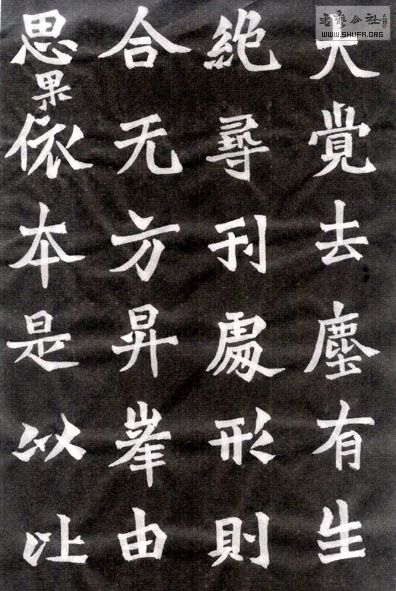 覺去塵有生
絶尋刊處形則
合无方昇峯由
思果依本是以
公社
WWW.SHUFA.ORG